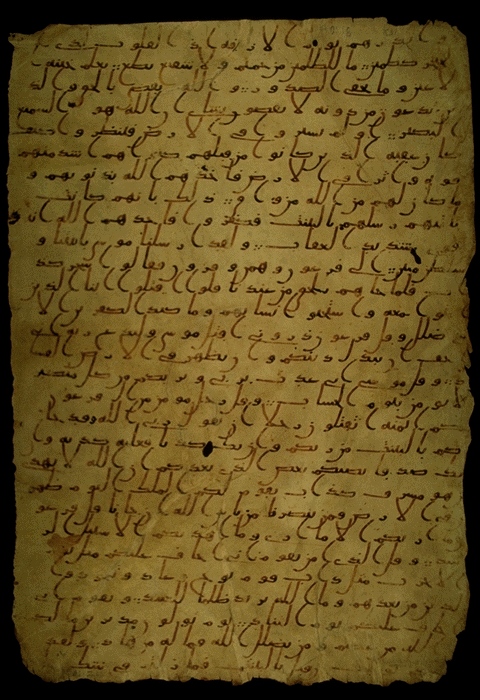 وانذرهم يوم الازفة اذ القلوب لدى
الحناجر كظمين ما للظلمين من حميم ولا شفيع يطاع يعلم خاينة
الاعين وما تخفى الصدور والله يقضى بالحق والذ
ين يدعون من دونه لا يقضون بشى ان الله هو السميع
البصير او لم يسيروا فى الارض فينظروا كيف
كان عقبة الذين كانوا من قبلهم كانوا هم اشد منهم
قوة واثرا فى الارض فاخذهم الله بذنوبهم و
ما كان لهم من الله من واق ذلك بانهم كانت
تاتيهم رسلهم بالبينت فكفروا فاخذهم الله انه
قوى شديد العقاب ولقد ارسلنا موسى بايتنا و
سلطن مبين الى فرعون وهمن وقرون فقالوا سحر كذ
اب فلما جاهم بالحق من عندنا قالوا اقتلوا ابنا الذين
امنوا معه واستحيوا نساهم وما كيد الكفرين الا
فى ضلل وقال فرعون ذرونى اقتل موسى وليدع ربه انى
اخاف ان يبدل دينكم وان يظهر فى الارض الفسا
د وقال موسى انى عذت بربى وربكم من كل متكبر
لا يومن بيوم الحساب وقال رجل مومن من ال فرعون
يكتم ايمنه اتقتلون رجلا ان يقول ربى الله وقد جا
كم بالبينت من ربكم وان يك كذبا فعليه كذبه و
ان يك صدقا يصبكم بعض الذى يعدكم ان الله لا يهدى
من هو مسرف كذاب يقوم لكم الملك اليوم ظهر
ين فى الارض فمن ينصرنا من باس الله ان جانا قال فرعو
ن ما اريكم الا ما ارى وما اهديكم الا سبيل الر
شاد وقال الذى امن يقوم انى اخاف عليكم مثل يو
م الاحزاب مثل داب قوم نوح وعاد وثمود و
الذين من بعدهم وما الله يريد ظلما للعباد ويقوم انى
اخاف عليكم يوم التناد يوم تولون مدبرين ما لكم
من الله من عصم ومن يضلل الله فما له من هاد ولقد
قبل بالبينت فما زلتم فى شك